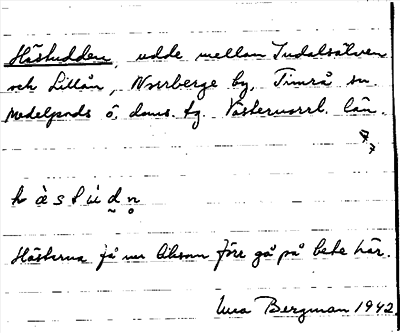 Hästudden, udde mellan Indalsälven
och Lillån, Norrberge by, Timrå sn.
Medelpads ö. doms. tg. Västernorrl. län.
h ὰ s t ú d n
Hästarna få
gå på bete här.
Bergman 1942